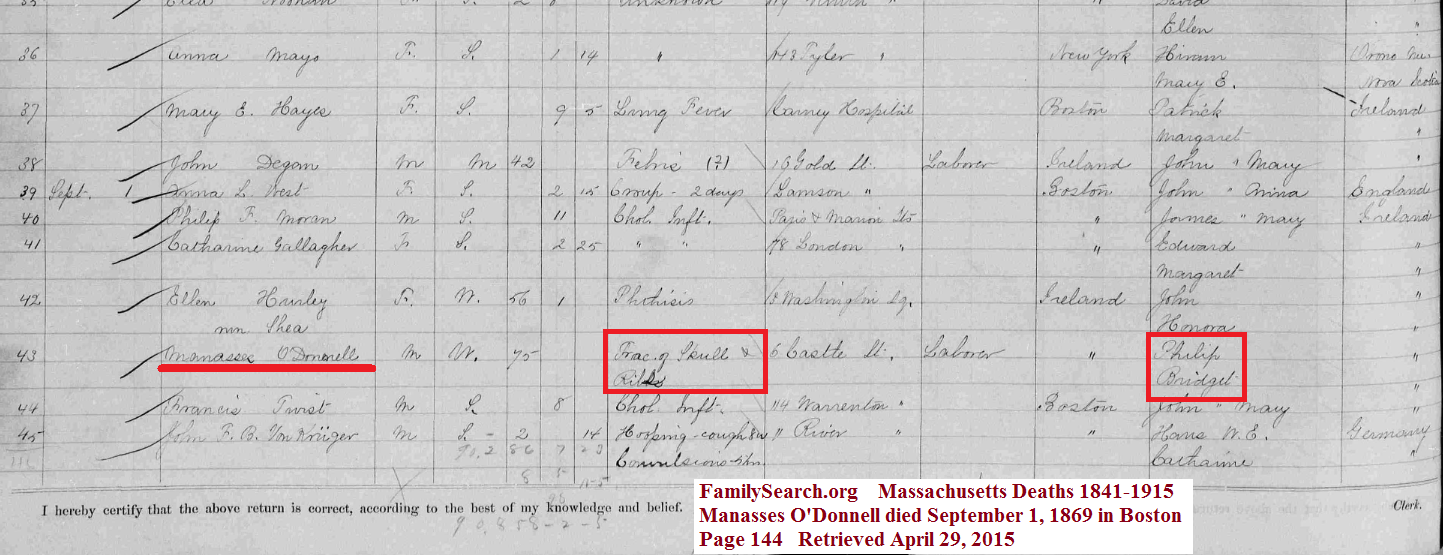 Ellen "
36 Anna Mayo F. S. 1 14 " 443 Tyler " New York Hiram Orono Me.
Mary E. Nova Scotia
37 Mary E. Hayes F. S. 9 5 Lung Fever Carney Hospital Boston Patrick Ireland
Margaret "
38 John Degan M M 42 Febris (7) 16 Gold St. Laborer Ireland John " Mary "
39 Sept. 1 Anna L. West F. S. 2 15 Croup - 2 days Lamson " Boston John " Anna England
40 Philip F. Moran M S. 11 Chol. Inft. Paris & Marion Sts " James " Mary Ireland
41 Catharine Gallagher F. S. 2 25 " " 78 London " " Edward "
Margaret "
42 Ellen Hurley F. W. 56 1 Phthisis Washington Sq. Ireland John "
Shea Honora "
43 Manasses O'Donnell M W. 75 Frac. of Skull & 6 Castle St. Laborer " Philip "
Ribs Bridget "
44 Francis Twist M S. 8 Chol. Inft. 114 Warrenton " Boston John " Mary "
45 John F. B. Von Krüger M S. - 2 14 Hooping-cough & " River " " Hans W. E. Germany
Convulsions Catharine "
I hereby certify that the above return is correct, according to the best of my knowledge and belief. Clerk.
90,858-2-5
FamilySearch.org Massachusetts Deaths 1841-1915
Manasses O'Donnell died September 1, 1869 in Boston
Page 144 Retrieved April 29, 2015